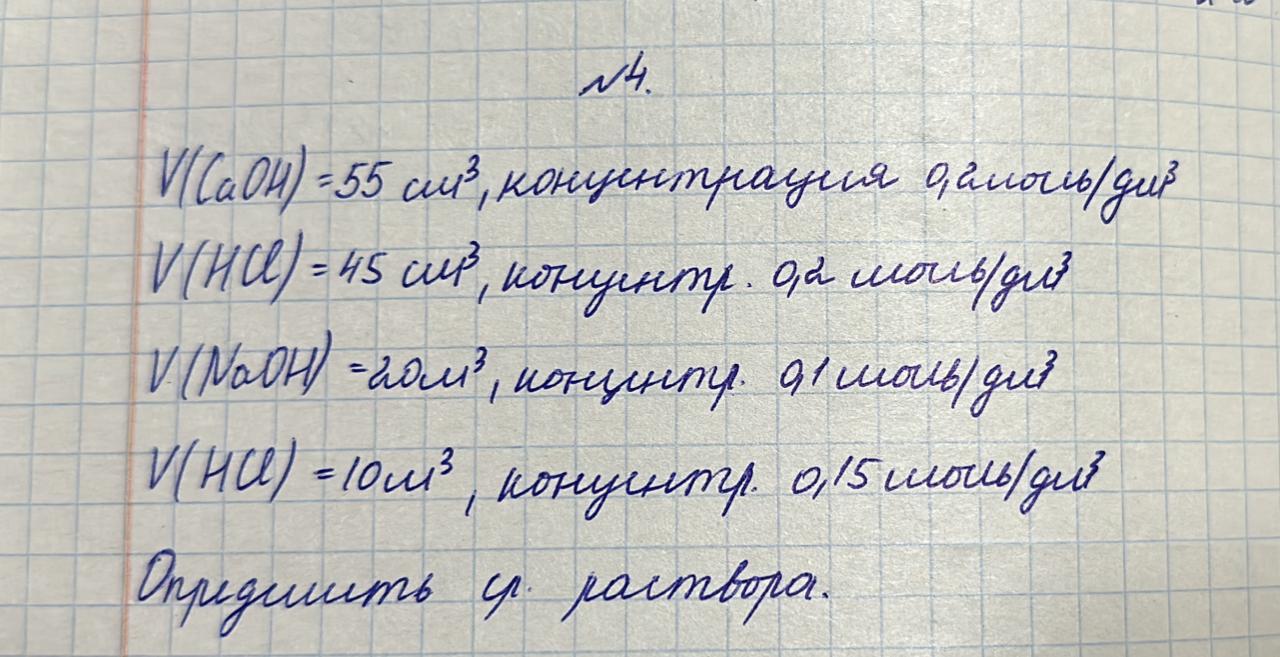 №4.
V(CaOH) = 55 см³, концентрация 0,2 моль/дм³
V(HCl) = 45 см³, концентр. 0,2 моль/дм³
V(NaOH) = 20 м³, концентр. 0,1 моль/дм³
V(HCl) = 10 м³, концентр. 0,15 моль/дм³
Определить ср. раствора.